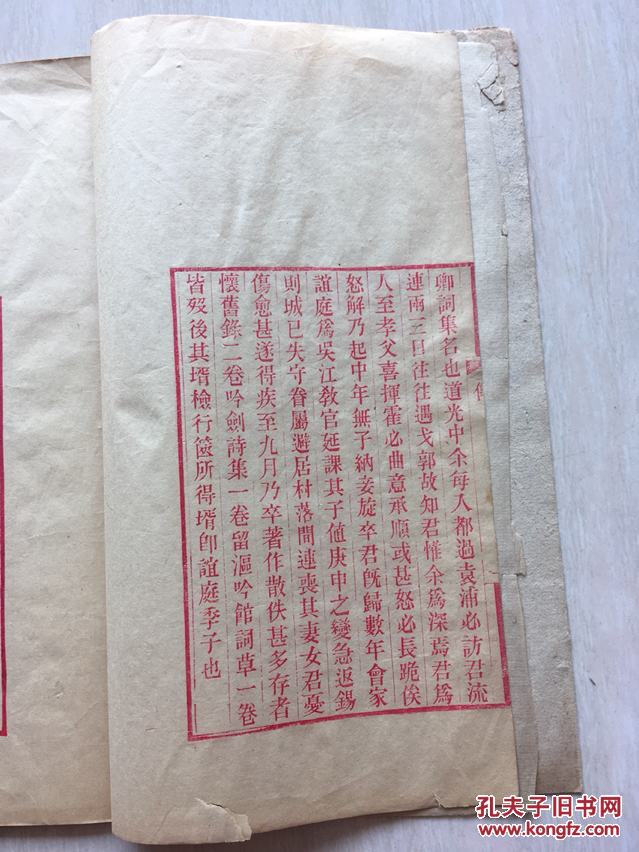 卿詞集名也道光中余每入都過袁浦必訪君流
連兩三日往往遇戈郭故知君惟余爲深焉君爲
人至孝父喜揮霍必曲意承順或甚怒必長跪俟
怒解乃起中年無子納妾旋卒君旣歸數年會家
誼庭爲吳江敎官延課其子値庚申之變急返錫
則城已失守眷屬避居村落間連喪其妻女君憂
傷愈甚遂得疾至九月乃卒著作散佚甚多存者
懷舊錄二卷吟劍詩集一卷留漚吟館詞草一卷
皆歿後其壻檢行篋所得壻卽誼庭季子也
孔夫子旧书网
www.kongfz.com